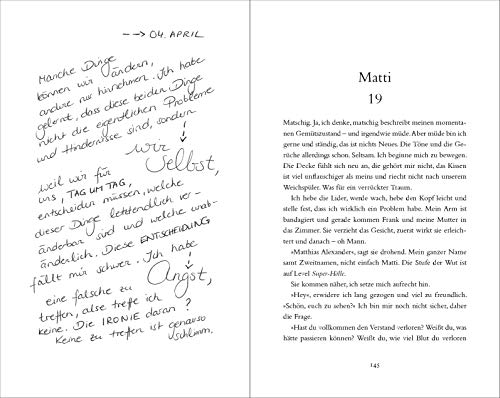 --> 04. APRIL
Manche Dinge
können wir ändern,
andere nur hinnehmen. Ich habe
gelernt, dass diese beiden Dinge
nicht die eigentlichen Probleme
und Hindernisse sind, sondern
wir
Selbst,
weil wir für
uns, TAG UM TAG,
entscheiden müssen, welche
dieser Dinge letztendlich ver-
änderbar sind und welche unab-
änderlich. Diese ENTSCHEIDUNG
fällt mir schwer. Ich habe
Angst,
eine falsche zu
treffen, also treffe ich
keine. Die IRONIE daran?
Keine zu treffen ist genauso
schlimm.
Matti
19
Matschig. Ja, ich denke, matschig beschreibt meinen momenta-
nen Gemütszustand – und irgendwie müde. Aber müde bin ich
gerne und ständig, das ist nichts Neues. Die Töne und die Ge-
rüche allerdings schon. Seltsam. Ich beginne mich zu bewegen.
Die Decke fühlt sich neu an, die gehört mir nicht, das Kissen
ist viel unflauschiger als meins und riecht nicht nach unserem
Weichspüler. Was für ein verrückter Traum.
Ich hebe die Lider, werde wach, hebe den Kopf leicht und
stelle fest, dass ich wirklich ein Problem habe. Mein Arm ist
bandagiert und gerade kommen Frank und meine Mutter in
das Zimmer. Sie verzieht das Gesicht, zuerst wirkt sie erleich-
tert und danach – oh Mann.
»Matthias Alexander«, sagt sie drohend. Mein ganzer Name
samt Zweitnamen, nicht einfach Matti. Die Stufe der Wut ist
auf Level Super-Hölle.
Sie kommen näher, ich setze mich aufrecht hin.
»Hey«, erwidere ich lang gezogen und viel zu freundlich.
»Schön, euch zu sehen?« Ich bin mir noch nicht sicher, daher
die Frage.
»Hast du vollkommen den Verstand verloren? Weißt du, was
hätte passieren können? Weißt du, wie viel Blut du verloren
145